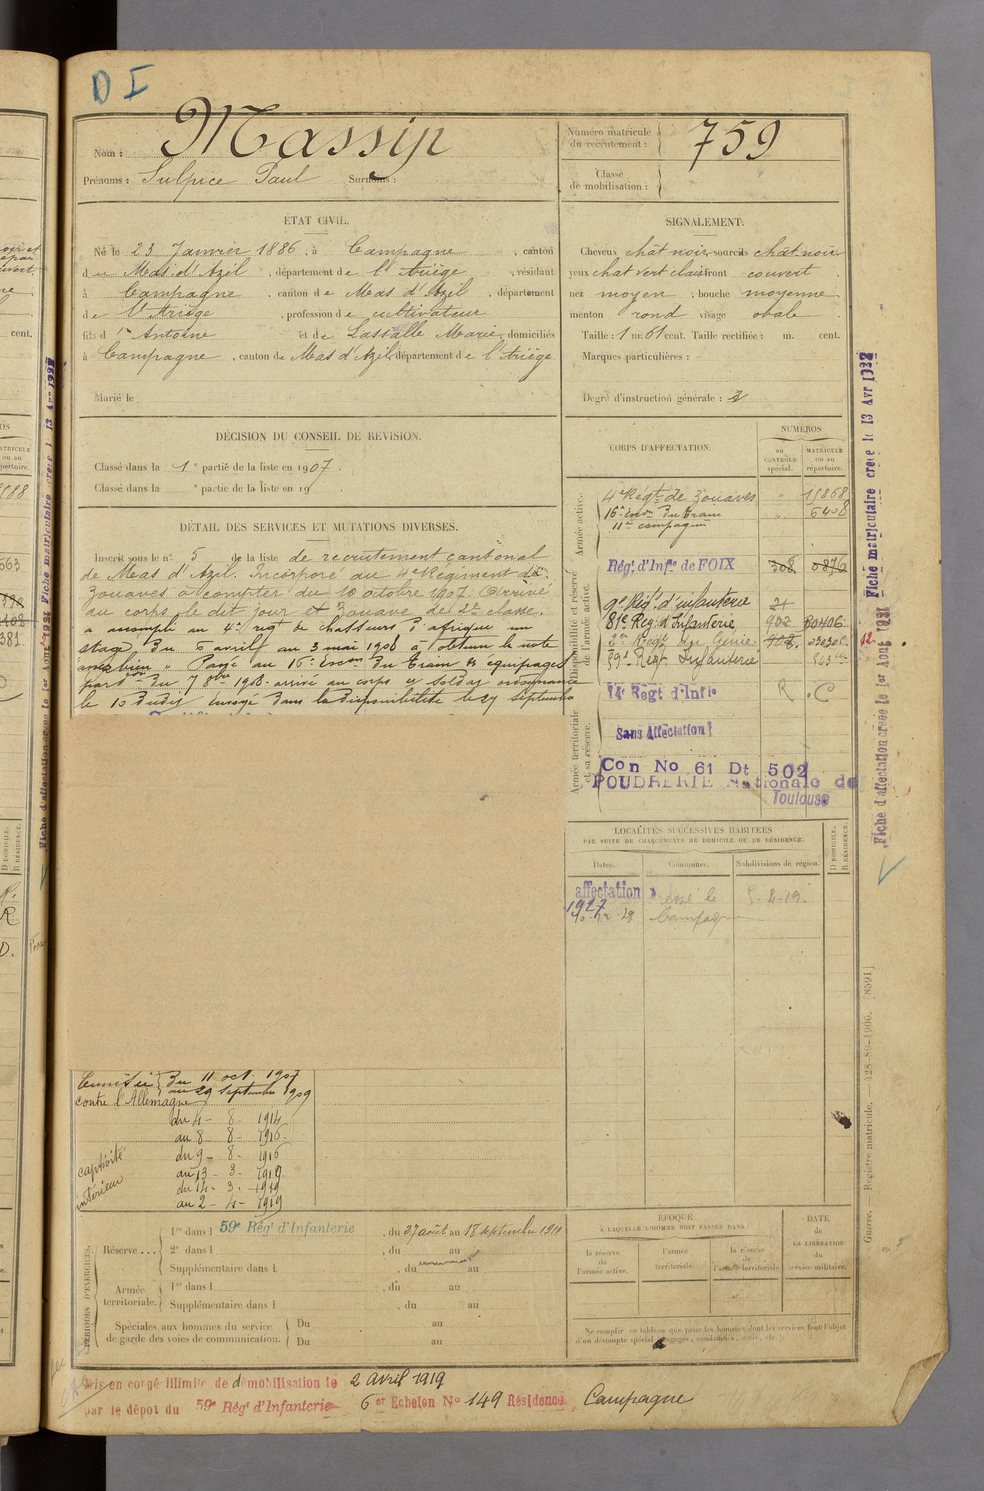 D I
Nom : Massip
Prénoms : Sulpice Paul Surnoms :
Numéro matricule du recrutement : 759
Classe de mobilisation :
ÉTAT CIVIL.
Né le 23 Janvier 1886, à Campagne, canton
du Mas d'Azil, département de l'Ariège, résidant
à Campagne, canton de Mas d'Azil, département
de l'Ariège, profession de cultivateur
fils d' Antoine et de Lassalle Marie, domiciliés
à Campagne, canton de Mas d'Azil, département de l'Ariège
Marié le
SIGNALEMENT.
Cheveux chât noir, sourcils chât noir
yeux chat vert clair front couvert
nez moyen, bouche moyenne
menton rond visage ovale
Taille : 1 m. 61 cent. Taille rectifiée : m. cent.
Marques particulières :
Degré d'instruction générale :
DÉCISION DU CONSEIL DE REVISION.
Classé dans la 1e partie de la liste en 1907.
Classé dans la e partie de la liste en 19
DÉTAIL DES SERVICES ET MUTATIONS DIVERSES.
Inscrit sous le n° 5 de la liste de recrutement cantonal
de Mas d'Azil. Incorporé au 4e Régiment de
Zouaves à compter du 10 octobre 1907. Arrivé
au corps le dit jour et Zouave de 2e classe.
a accompli au 4e regt de chasseurs d'afrique un
stage du 6 avril au 3 mai 1908 a obtenu la note
assez bien. Passé au 16e Escon du train des équipages
le 10 dudit envoyé dans la disponibilité le 29 septembre
CORPS D'AFFECTATION.
NUMÉROS
au CONTRÔLE spécial.
MATRICULE ou au répertoire.
Armée active.
4e Régt de Zouaves 15868
16e Escon du train 6408
11e compagnie
Disponibilité et réserve de l'armée active.
Régt d'Infie de FOIX 308 0876
9e Régt d'infanterie 21
81e Reg. d'Infanterie
2e Régt du Génie
59e Régt Infanterie
Armée territoriale et sa réserve.
14e Régt d'Infie
Sans Affectation
Con No 61 Dt 502
POUDRERIE Nationale de
Toulouse
LOCALITÉS SUCCESSIVES HABITÉES
PAR SUITE DE CHANGEMENTS DE DOMICILE OU DE RÉSIDENCE.
Dates. Communes. Subdivisions de région.
D DOMICILE. R RÉSIDENCE.
affectation
1927
du 11 oct. 1907
au 29 septembre 1909
contre l'Allemagne
du 4 - 8 - 1914
au 8 - 8 - 1916
captivité
du 9 - 8 - 1916
au 13 - 3 - 1919
intérieur
du 14 - 3 - 1919
au 2 - 4 - 1919
PÉRIODES D'EXERCICES.
Réserve ...
1re dans l 59e Régt d'Infanterie, du 27 août au 18 septembre 1911
2e dans l , du au
Supplémentaire dans l , du au
Armée territoriale.
1re dans l , du au
Supplémentaire dans l , du au
Spéciales aux hommes du service de garde des voies de communication.
Du au
Du au
ÉPOQUE
À LAQUELLE L'HOMME DOIT PASSER DANS
la réserve de l'armée active.
l'armée territoriale.
la réserve de l'armée territoriale
DATE de LA LIBÉRATION du service militaire.
Ne remplir ce tableau que pour les hommes dont les services font l'objet
d'un décompte spécial (engagés, condamnés, omis, etc.).
Mis en congé illimité de démobilisation le 2 avril 1919
par le dépôt du 59e Régt d'Infanterie 6 Echelon No 149 Résidence Campagne
Fiche d'affectation créée le 1er Août 1931 Fiche matriculaire créée le 13 Avr 1932
Guerre. — Registre matricule.